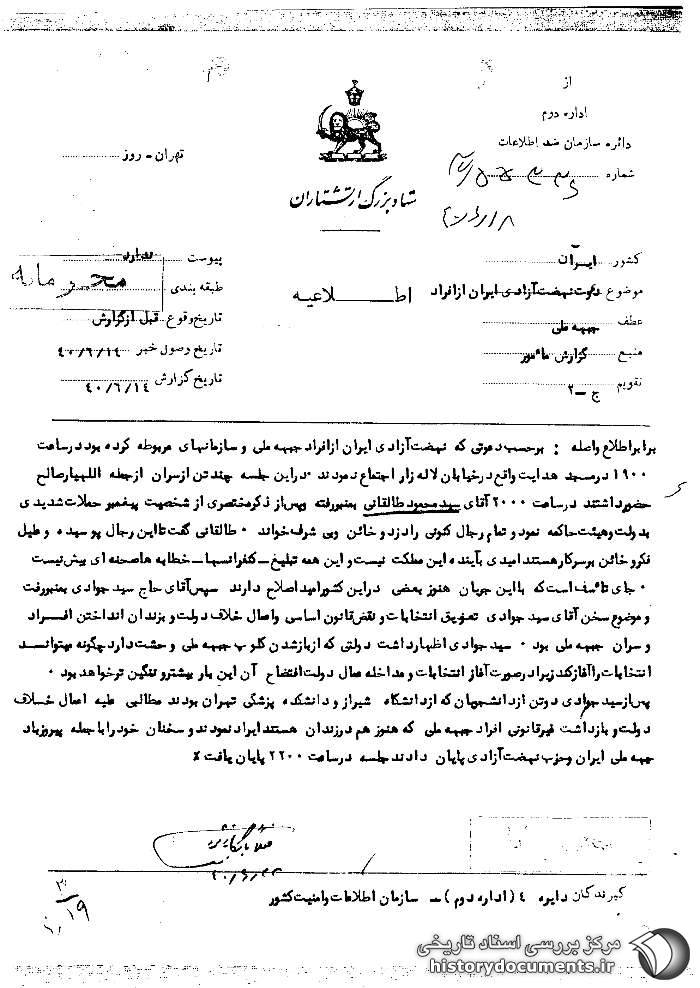 از
اداره دوم
دائره سازمان ضد اطلاعات
شماره
تهران - روز
شاه بزرگ ارتشتاران
کشور ایران
پیوست ندارد
محرمانه
موضوع دعوت نهضت آزادی ایران از افراد
اطلاعیه
طبقه بندی
عطف جبهه ملی
تاریخ وقوع قبل از گزارش
منبع گزارش مأمور
تاریخ وصول خبر ۴۰/۶/۱۴
تقویم ج-۲
تاریخ گزارش ۴۰/۶/۱۴
برابر اطلاع واصله : برحسب دعوتی که نهضت آزادی ایران از افراد جبهه ملی و سازمانهای مربوطه کرده بود در ساعت
۱۹۰۰ در مسجد هدایت واقع در خیابان لاله زار اجتماع نمودند ۰ در این جلسه چند تن از سران از جمله اللهیار صالح
حضور داشتند در ساعت ۲۰۰۰ آقای سید محمود طالقانی بمنبر رفته و پس از ذکر مختصری از شخصیت پیغمبر حملات شدیدی
بدولت و هیئت حاکمه نمود و تمام رجال کنونی را دزد و خائن و بی شرف خواند ۰ طالقانی گفت تا این رجال پوسیده و علیل
فکر و خائن بر سر کار هستند امیدی بآینده این مملکت نیست و این همه تبلیغ - کنفرانسها - خطابه ها صحنه ای بیش نیست
۰ جای تأسف است که با این جریان هنوز بعضی در این کشور امید اصلاح دارند سپس آقای حاج سید جوادی بمنبر رفت
و موضوع سخن آقای سید جوادی تعویق انتخابات و نقض قانون اساسی و اعمال خلاف دولت و بزندان انداختن افراد
و سران جبهه ملی بود ۰ سید جوادی اظهار داشت دولتی که از باز شدن کلوپ جبهه ملی وحشت دارد چگونه میتوانسد
انتخابات را آغاز کند زیرا در صورت آغاز انتخابات و مداخله عمال دولت افتضاح آن این بار بیشتر و ننگین تر خواهد بود ۰
پس از سید جوادی دو تن از دانشجویان که از دانشگاه شیراز و دانشکده پزشکی تهران بودند مطالبی علیه اعمال خلاف
دولت و بازداشت غیرقانونی افراد جبهه ملی که هنوز هم در زندان هستند ایراد نمودند و سخنان خود را با جمله پیروز باد
جبهه ملی ایران و حزب نهضت آزادی پایان دادند جلسه در ساعت ۲۲۰۰ پایان یافت ٪
گیرندگان دایره ۴ (اداره دوم) - سازمان اطلاعات و امنیت کشور
۱۹
مرکز بررسی اسناد تاریخی
historydocuments.ir